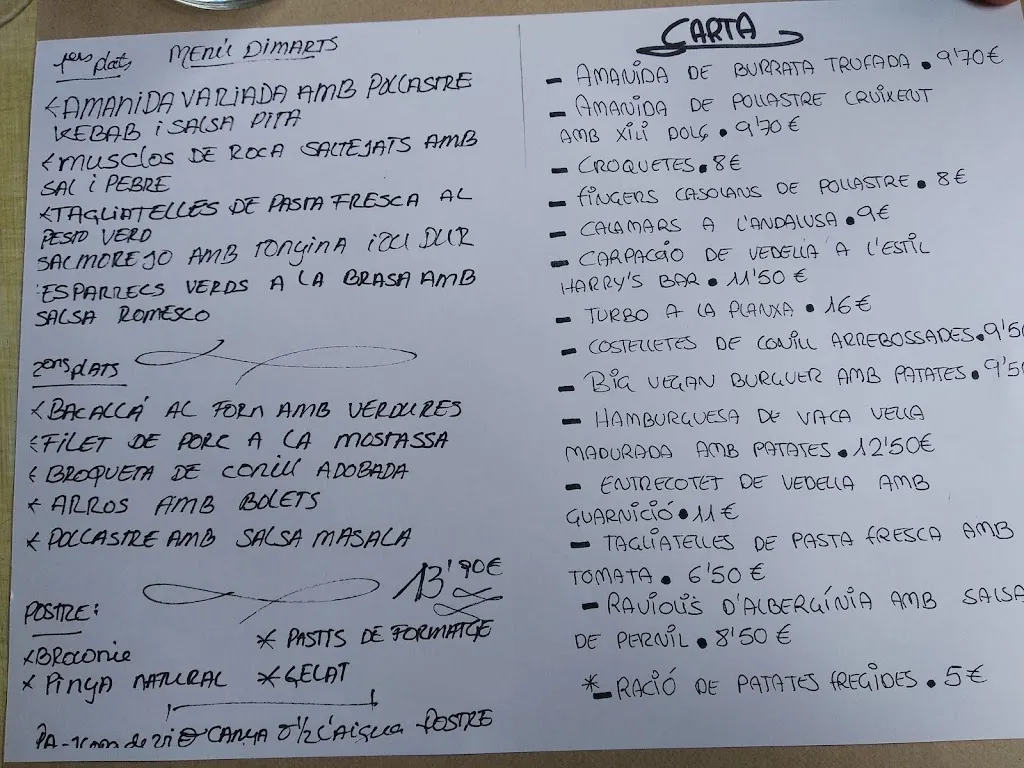 1ers plats
MENÚ DIMARTS
AMANIDA VARIADA AMB POLLASTRE
KEBAB i SALSA PITA
MUSCLOS DE ROCA SALTEJATS AMB
SAL i PEBRE
TAGLIATELLES DE PASTA FRESCA AL
PESTO VERD
SALMOREJO AMB TONYINA i OU DUR
ESPARRECS VERDS A LA BRASA AMB
SALSA ROMESCO
2ons PLATS
BACALLÁ AL FORN AMB VERDURES
FILET DE PORC A LA MOSTASSA
BROQUETA DE CONILL ADOBADA
ARROS AMB BOLETS
POLLASTRE AMB SALSA MASALA
13'90€
POSTRE:
* BROWNIE
* PASTIS DE FORMATGE
* PINYA NATURAL
* GELAT
PA - 1 copa de vi O CANYA O 1/2 L'AIGUA - POSTRE
CARTA
- AMANIDA DE BURRATA TRUFADA • 9'70€
- AMANIDA DE POLLASTRE CRUIXENT
AMB XILI DOLÇ • 9'70€
- CROQUETES • 8€
- FINGERS CASOLANS DE POLLASTRE • 8€
- CALAMARS A L'ANDALUSA • 9€
- CARPACCIO DE VEDELLA A L'ESTIL
HARRY'S BAR • 11'50€
- TURBO A LA PLANXA • 16€
- COSTELLETES DE CONILL ARREBOSSADES • 9'50
- BIG VEGAN BURGUER AMB PATATES • 9'50
- HAMBURGUESA DE VACA VELLA
MADURADA AMB PATATES • 12'50€
- ENTRECOTET DE VEDELLA AMB
GUARNICIÓ • 11€
- TAGLIATELLES DE PASTA FRESCA AMB
TOMATA • 6'50€
- RAVIOLIS D'ALBERGÍNIA AMB SALSA
DE PERNIL • 8'50€
*- RACIÓ DE PATATES FREGIDES • 5€